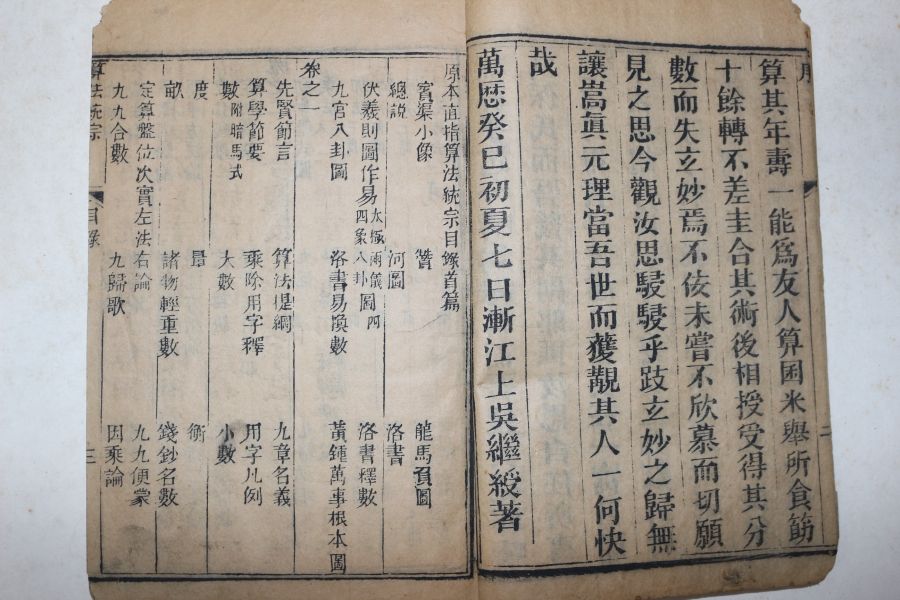 序
算其年壽一能爲友人算囷米舉所食筯
十餘轉不差圭合其術後相授受得其分
數而失玄妙焉不佞未嘗不欣慕而切願
見之思今觀汝思駸駸乎跂玄妙之歸無
讓嵩眞元理當吾世而獲覩其人一何快
哉
萬曆癸巳初夏七日漸江上吳繼綬著
二
原本直指算法統宗目錄首篇
賓渠小像 贊 龍馬負圖
總説 河圖 洛書
伏羲則圖作易 太極兩儀四象八卦 圖四 洛書釋數
九宮八卦圖 洛書易換數 黃鍾萬事根本圖
卷之一
先賢節言 算法提綱 九章名義
算學節要 乘除用字釋 用字凡例
數 附暗馬式 大數 小數
度 量 衡
畝 諸物輕重數 錢鈔名數
定算盤位次實左法右論 九九便蒙
九九合數 九歸歌 因乘論
算法統宗 目錄 三